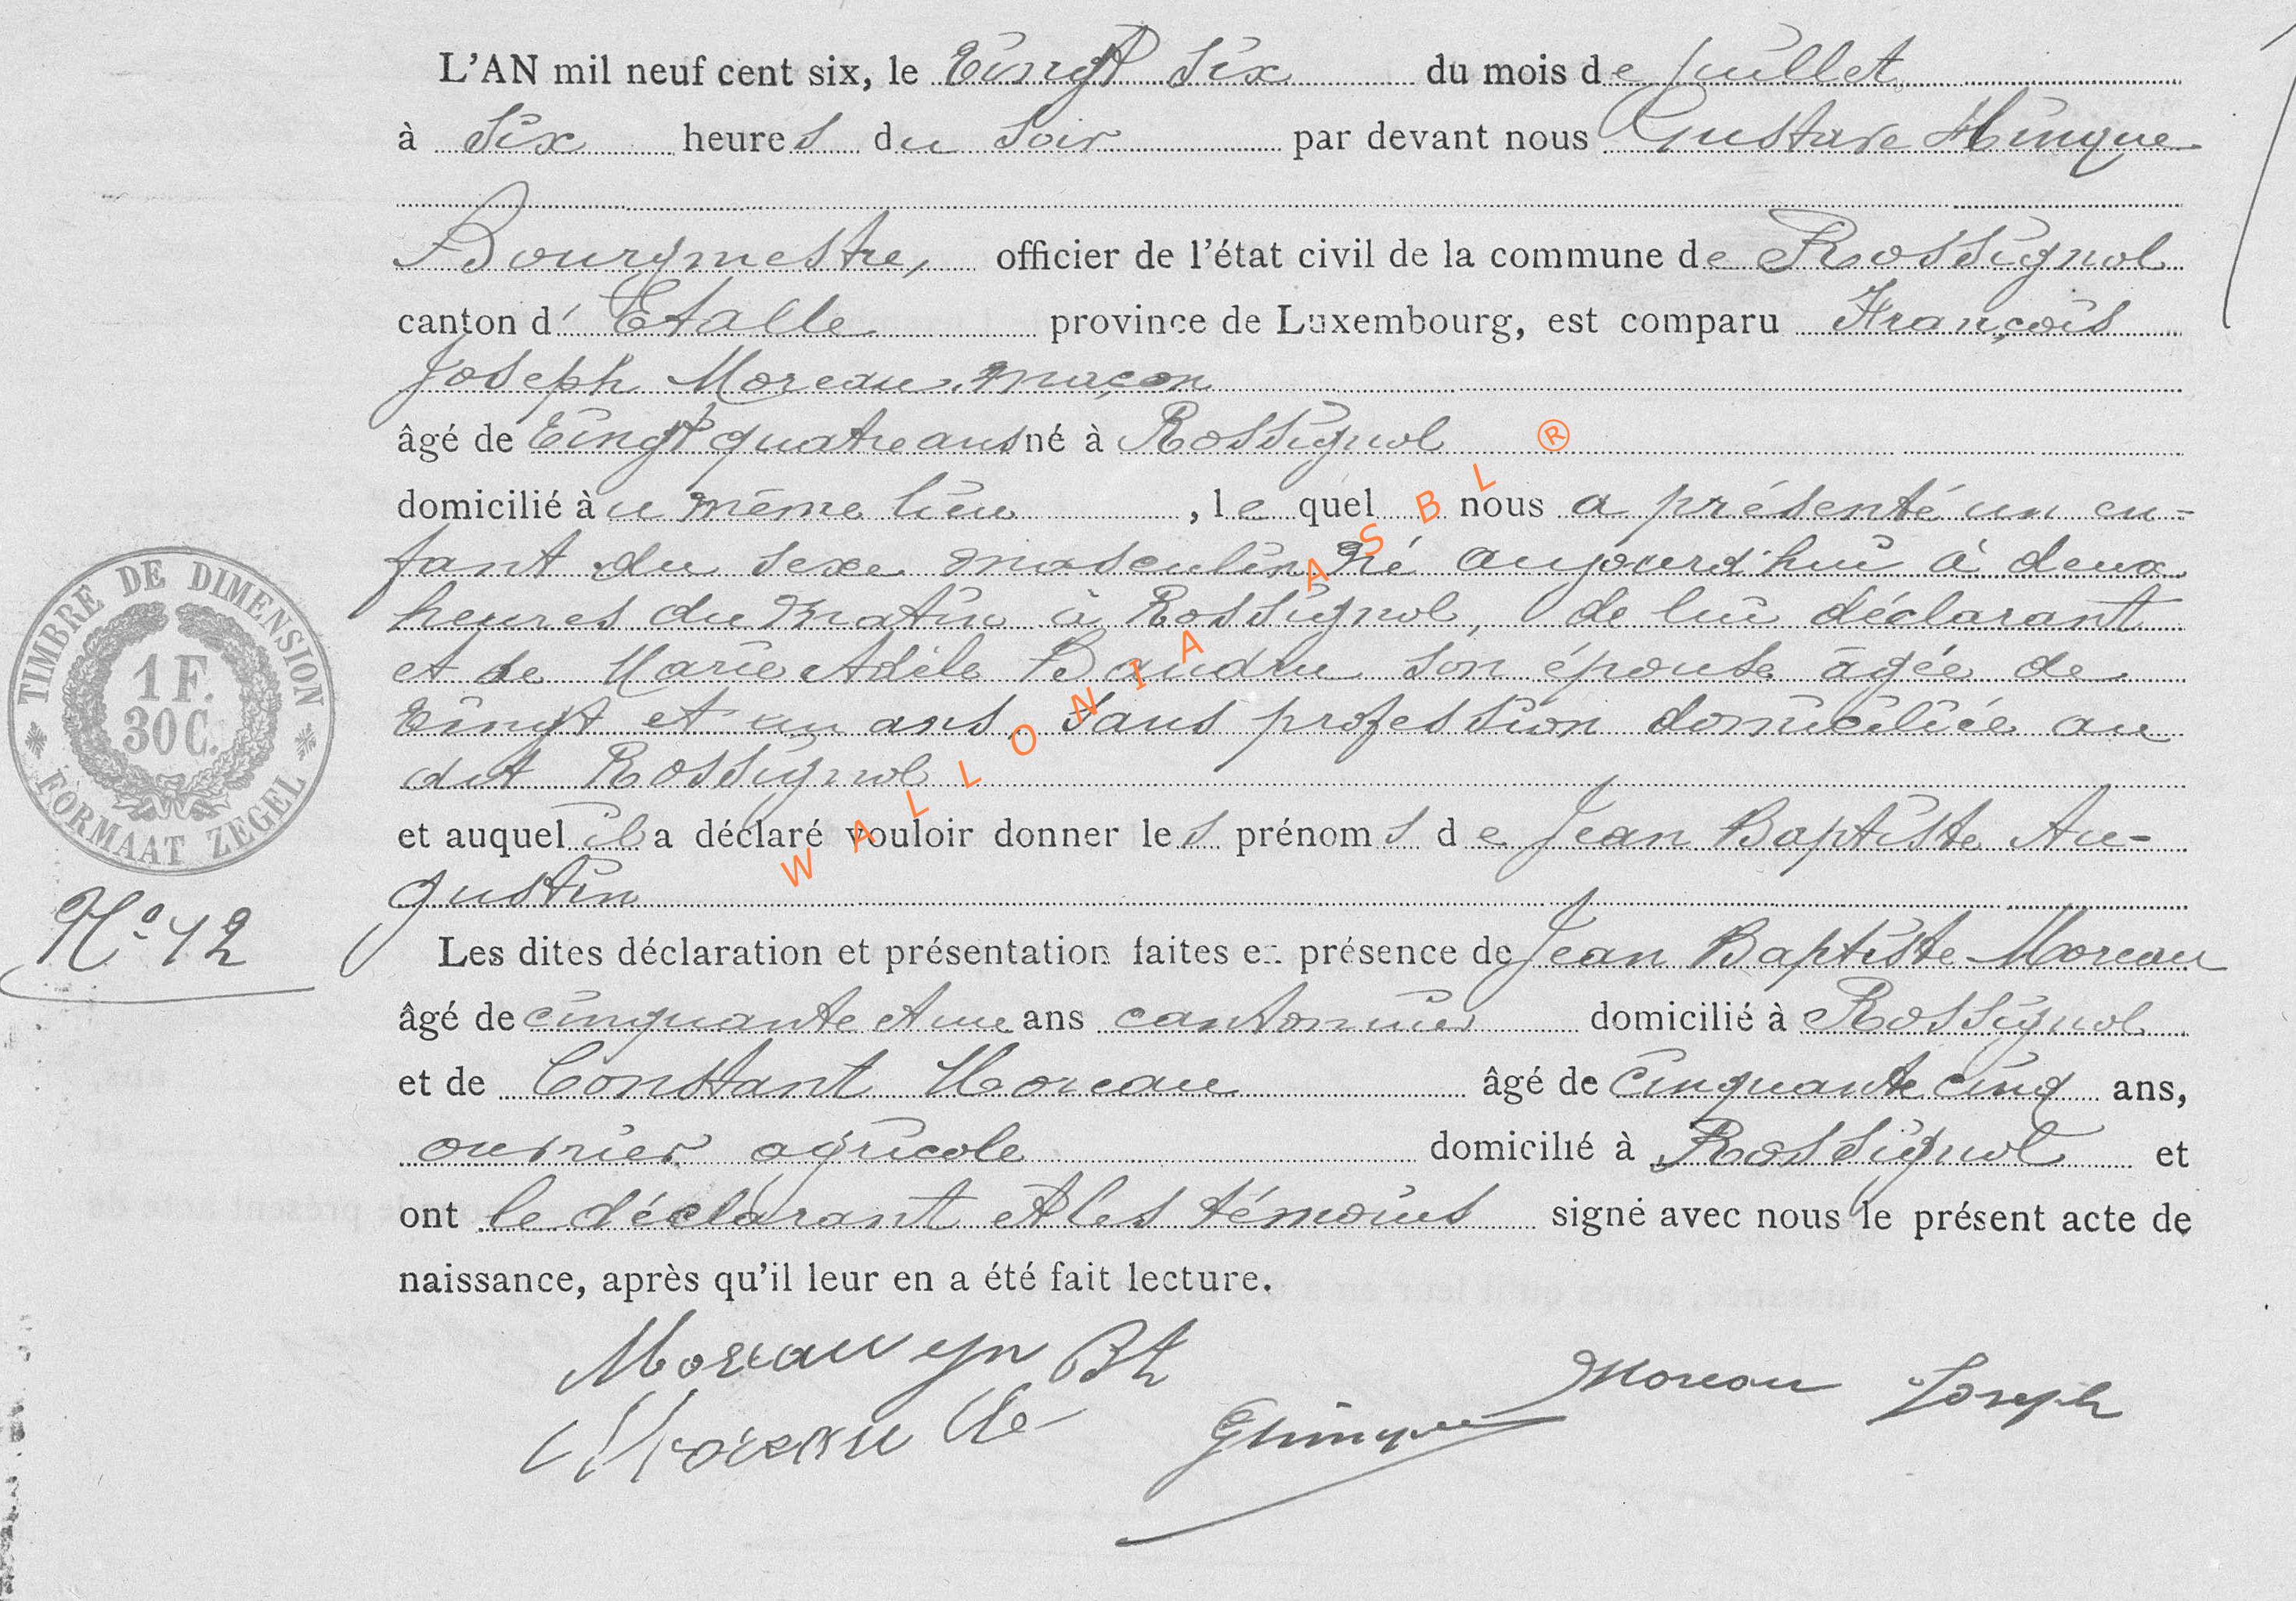 L'AN mil neuf cent six, le Vingt six du mois de juillet
à six heures du soir par devant nous Gustave Hinque
Bourgmestre, officier de l'état civil de la commune de Rossignol
canton d'Etalle province de Luxembourg, est comparu François
Joseph Moreau, maçon
âgé de Vingt quatre ans né à Rossignol
domicilié au même lieu , le quel nous a présenté un en-
fant du sexe masculin né aujourd'hui à deux
heures du matin à Rossignol, de lui déclarant
et de Marie Adèle Baudru son épouse âgée de
Vingt et un ans, sans profession domiciliée au
dit Rossignol
et auquel il a déclaré vouloir donner les prénoms de Jean Baptiste Au-
gustin
Les dites déclaration et présentation faites en présence de Jean Baptiste Moreau
âgé de cinquante et un ans cantonnier domicilié à Rossignol
et de Constant Moreau âgé de cinquante cinq ans,
ouvrier agricole domicilié à Rossignol et
ont le déclarant et les témoins signé avec nous le présent acte de
naissance, après qu'il leur en a été fait lecture.
Moreau Bte
Moreau Joseph
Moreau
GHinque
TIMBRE DE DIMENSION
1 F.
30 C.
FORMAAT ZEGEL
No 12
WALLONIA ASBL ®